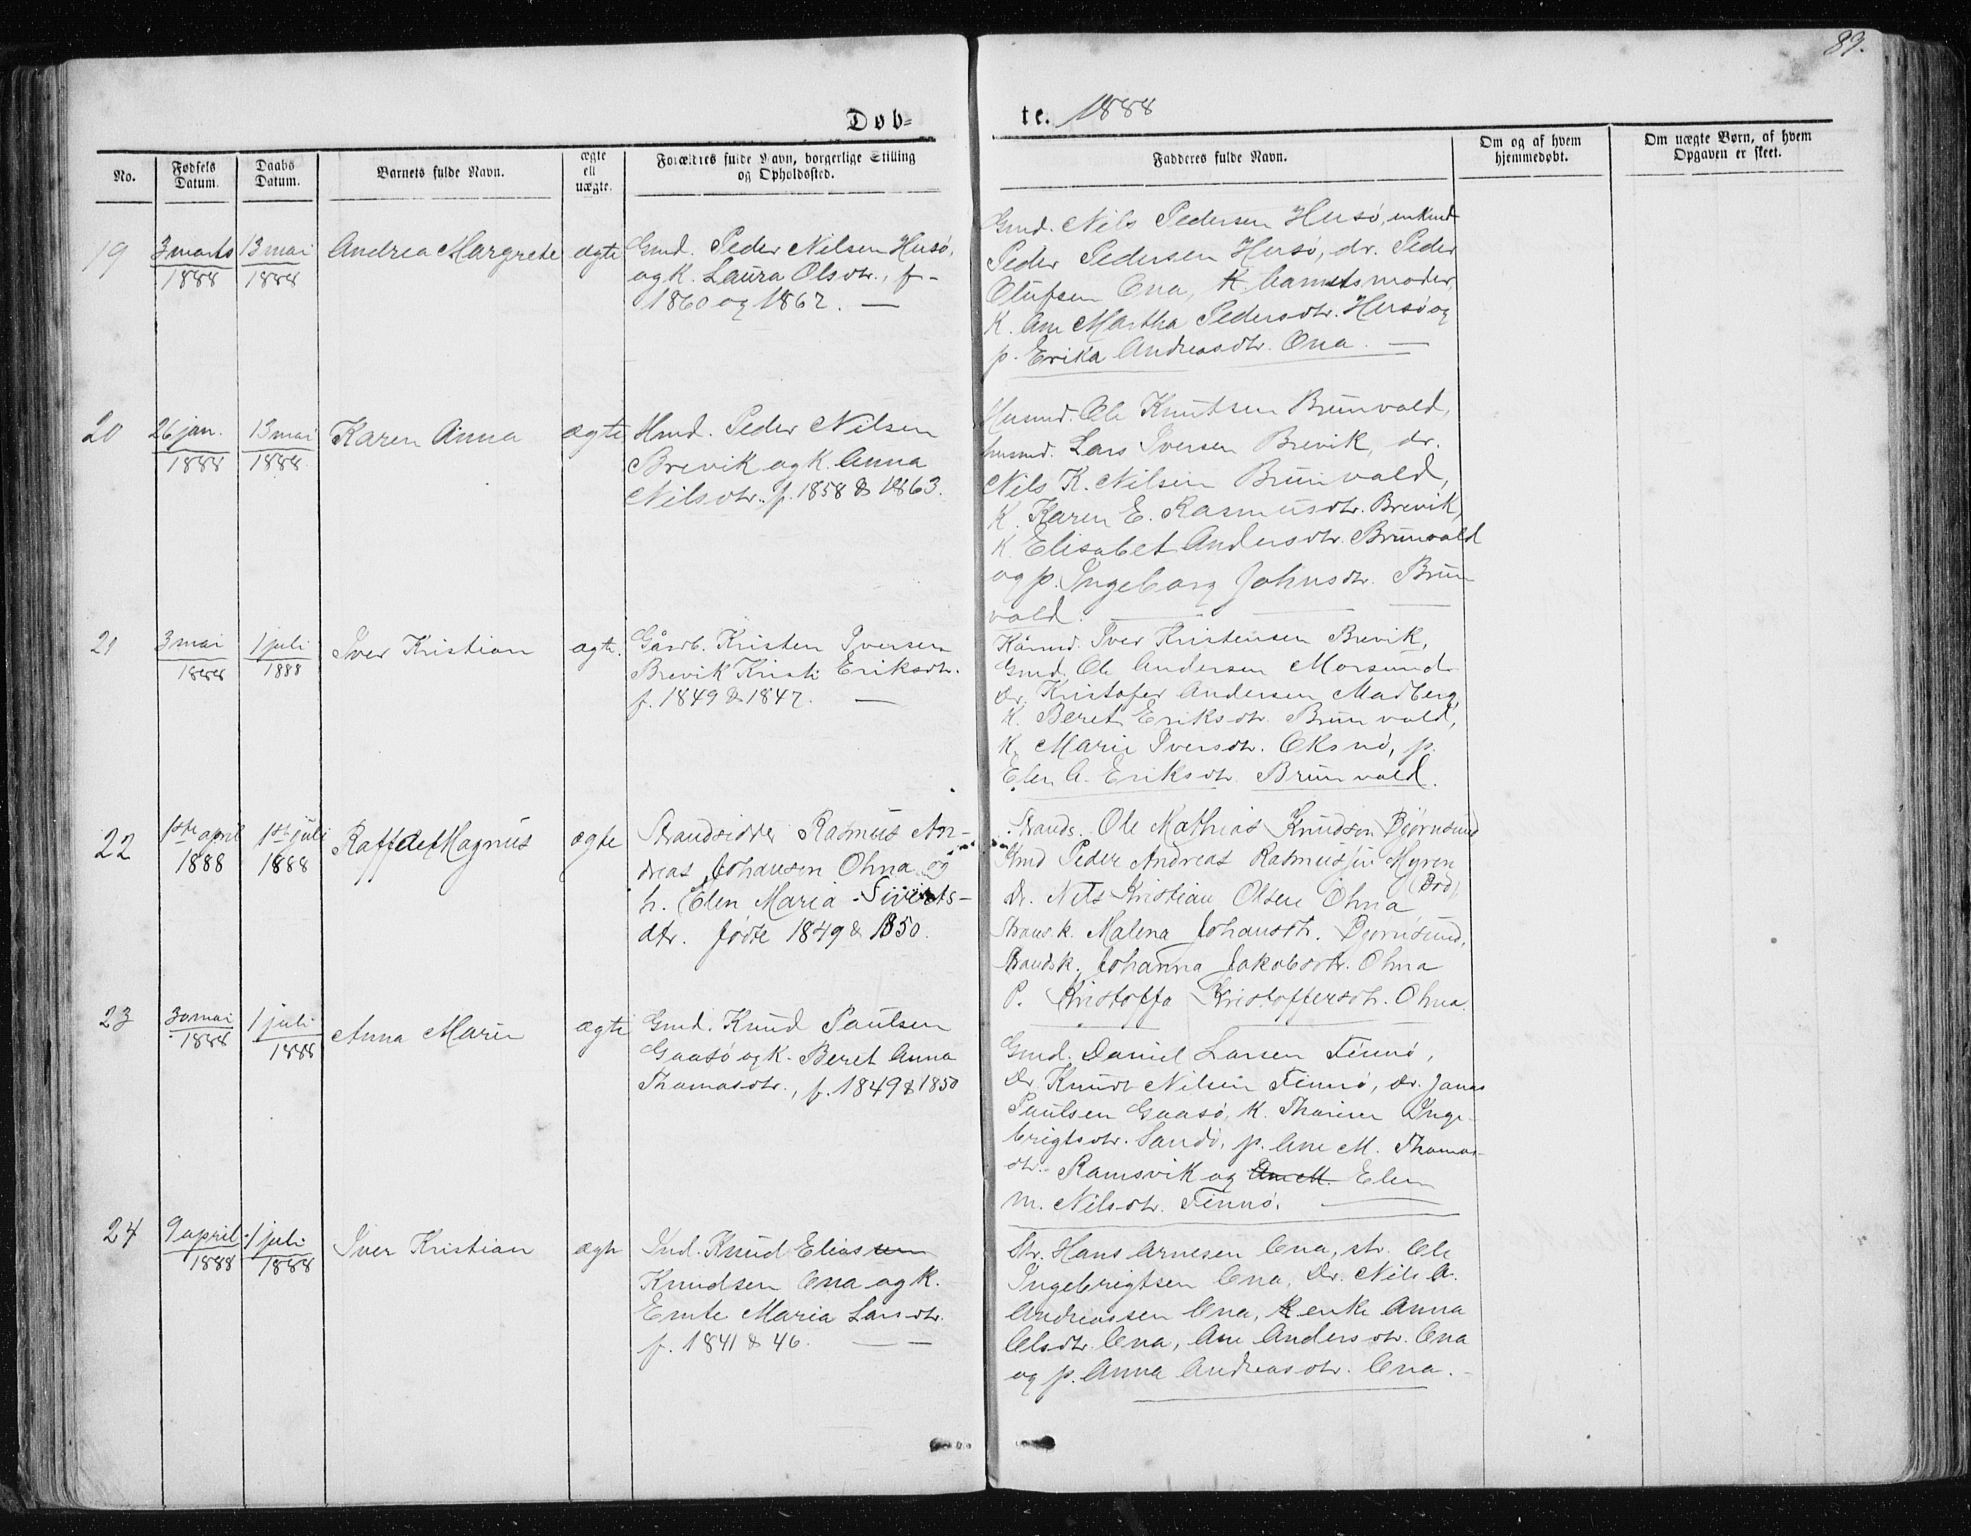 89.
Døb-
te. 1888
No.
Fødsels Datum.
Daabs Datum.
Barnets fulde Navn.
ægte ell uægte.
Forældres fulde Navn, borgerlige Stilling og Opholdssted.
Faddernes fulde Navn.
Om og af hvem hjemmedøbt.
Om uægte Børn, af hvem Opgaven er skeet.
19
3 marts 1888
13 mai 1888
Andrea Margrete
ægte
Gmd. Peder Nilsen Husø,
og K. Laura Olsdtr., f-
1860 og 1862. —
Gmd. Nils Pedersen Husø, enkmd
Peder Pedersen Husø, dr. Peder
Olufsen Ona, K barnets moder,
K. Ane Martha Pedersdtr. Husø og
p. Erika Andreasdtr. Ona. —
20
26 jan. 1888
13 mai 1888
Karen Anna
ægte
Hmd. Peder Nilsen
Brevik og K. Anna
Nilsdtr., f. 1858 & 1863.
Husmd. Ole Knutsen Brunvold,
husmd. Lars Iversen Brevik, dr.
Nils K. Nilsen Brunvold,
K. Karen E. Rasmusdtr. Brevik,
K. Elisabet Andersdtr. Brunvold
og p. Ingeborg Johnsdtr. Brun-
vold.
21
3 mai 1888
1 juli 1888
Iver Kristian
ægte.
Gårdb. Kristen Iversen
Brevik Kristi Eriksdtr.
f. 1849 & 1847. —
Kårmd. Iver Kristensen Brevik,
Gmd. Ole Andersen Morsund
Dr. Kristofer Andersen Madberg,
K. Beret Eriksdtr. Brunvold,
K. Marie Iversdtr. Oksnø, p.
Elen A. Eriksdtr. Brunvold.
22
1ste april 1888
1ste juli 1888
Magnus
ægte
Strandsidder Rasmus An-
dreas Johansen Ohna og
h. Elen Maria Siverts-
dtr. fødte 1849 & 1850.
Strands. Ole Mathias Knudsen Bjørnsund
Gmd Peder Andreas Rasmussen Myren
(Bod),
Dr. Nels Kristian Olsen Ohna
Strans.k. Malena Johansdtr. Bjørnsund,
Strandsk. Johanna Jakobsdtr. Ohna
P. Kristoffa Kristoffersdtr. Ohna.
23
30 mai 1888
1 juli 1888
Anna Marie
ægte
Gmd. Knud Paulsen
Gaasø og K. Beret Anna
Thomasdtr., f. 1849 & 1850
Gmd. Daniel Larsen Finnø,
Dr. Knudt Nilsen Finnø, dr. Jonas
Paulsen Gaasø, K. Thorine Inge-
brigtsdtr. Sandø, p. Ane M. Thomas-
dtr. Ramsvik og Ane M. Elen
M. Nilsdtr. Finnø. —
24
9 april 1888
1 juli 1888
Iver Kristian
ægte
Ind. Knud Eliassen
Knudsen Ona og K.
Emte Maria Larsdtr.
f. 1841 & 46. — —
Str. Hans Arnesen Ona, str. Ole
Ingebrigtsen Ona, Dr. Nils A.
Andreassen Ona, K enke Anna
Olsdtr. Ona, Ane Andersdtr. Ona
og p. Anna Andreasdtr. Ona.